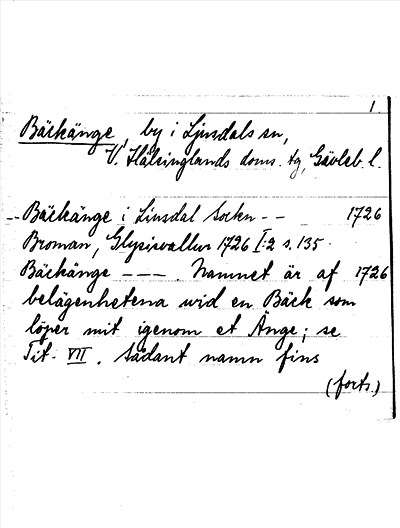 1.
Bäckänge, by i Ljusdals sn,
V. Hälsinglands doms. tg, Gävleb. l.
-- Bäckänge i Liusdal Sockn -- 1726
Broman, Glysisvallur 1726 I:2 s. 135.
Bäckänge --- . Namnet är af 1726
belägenhetena wid en Bäck som
löper mit igenom et Änge; se
Tit. VII. sådant namn fins
(forts.)